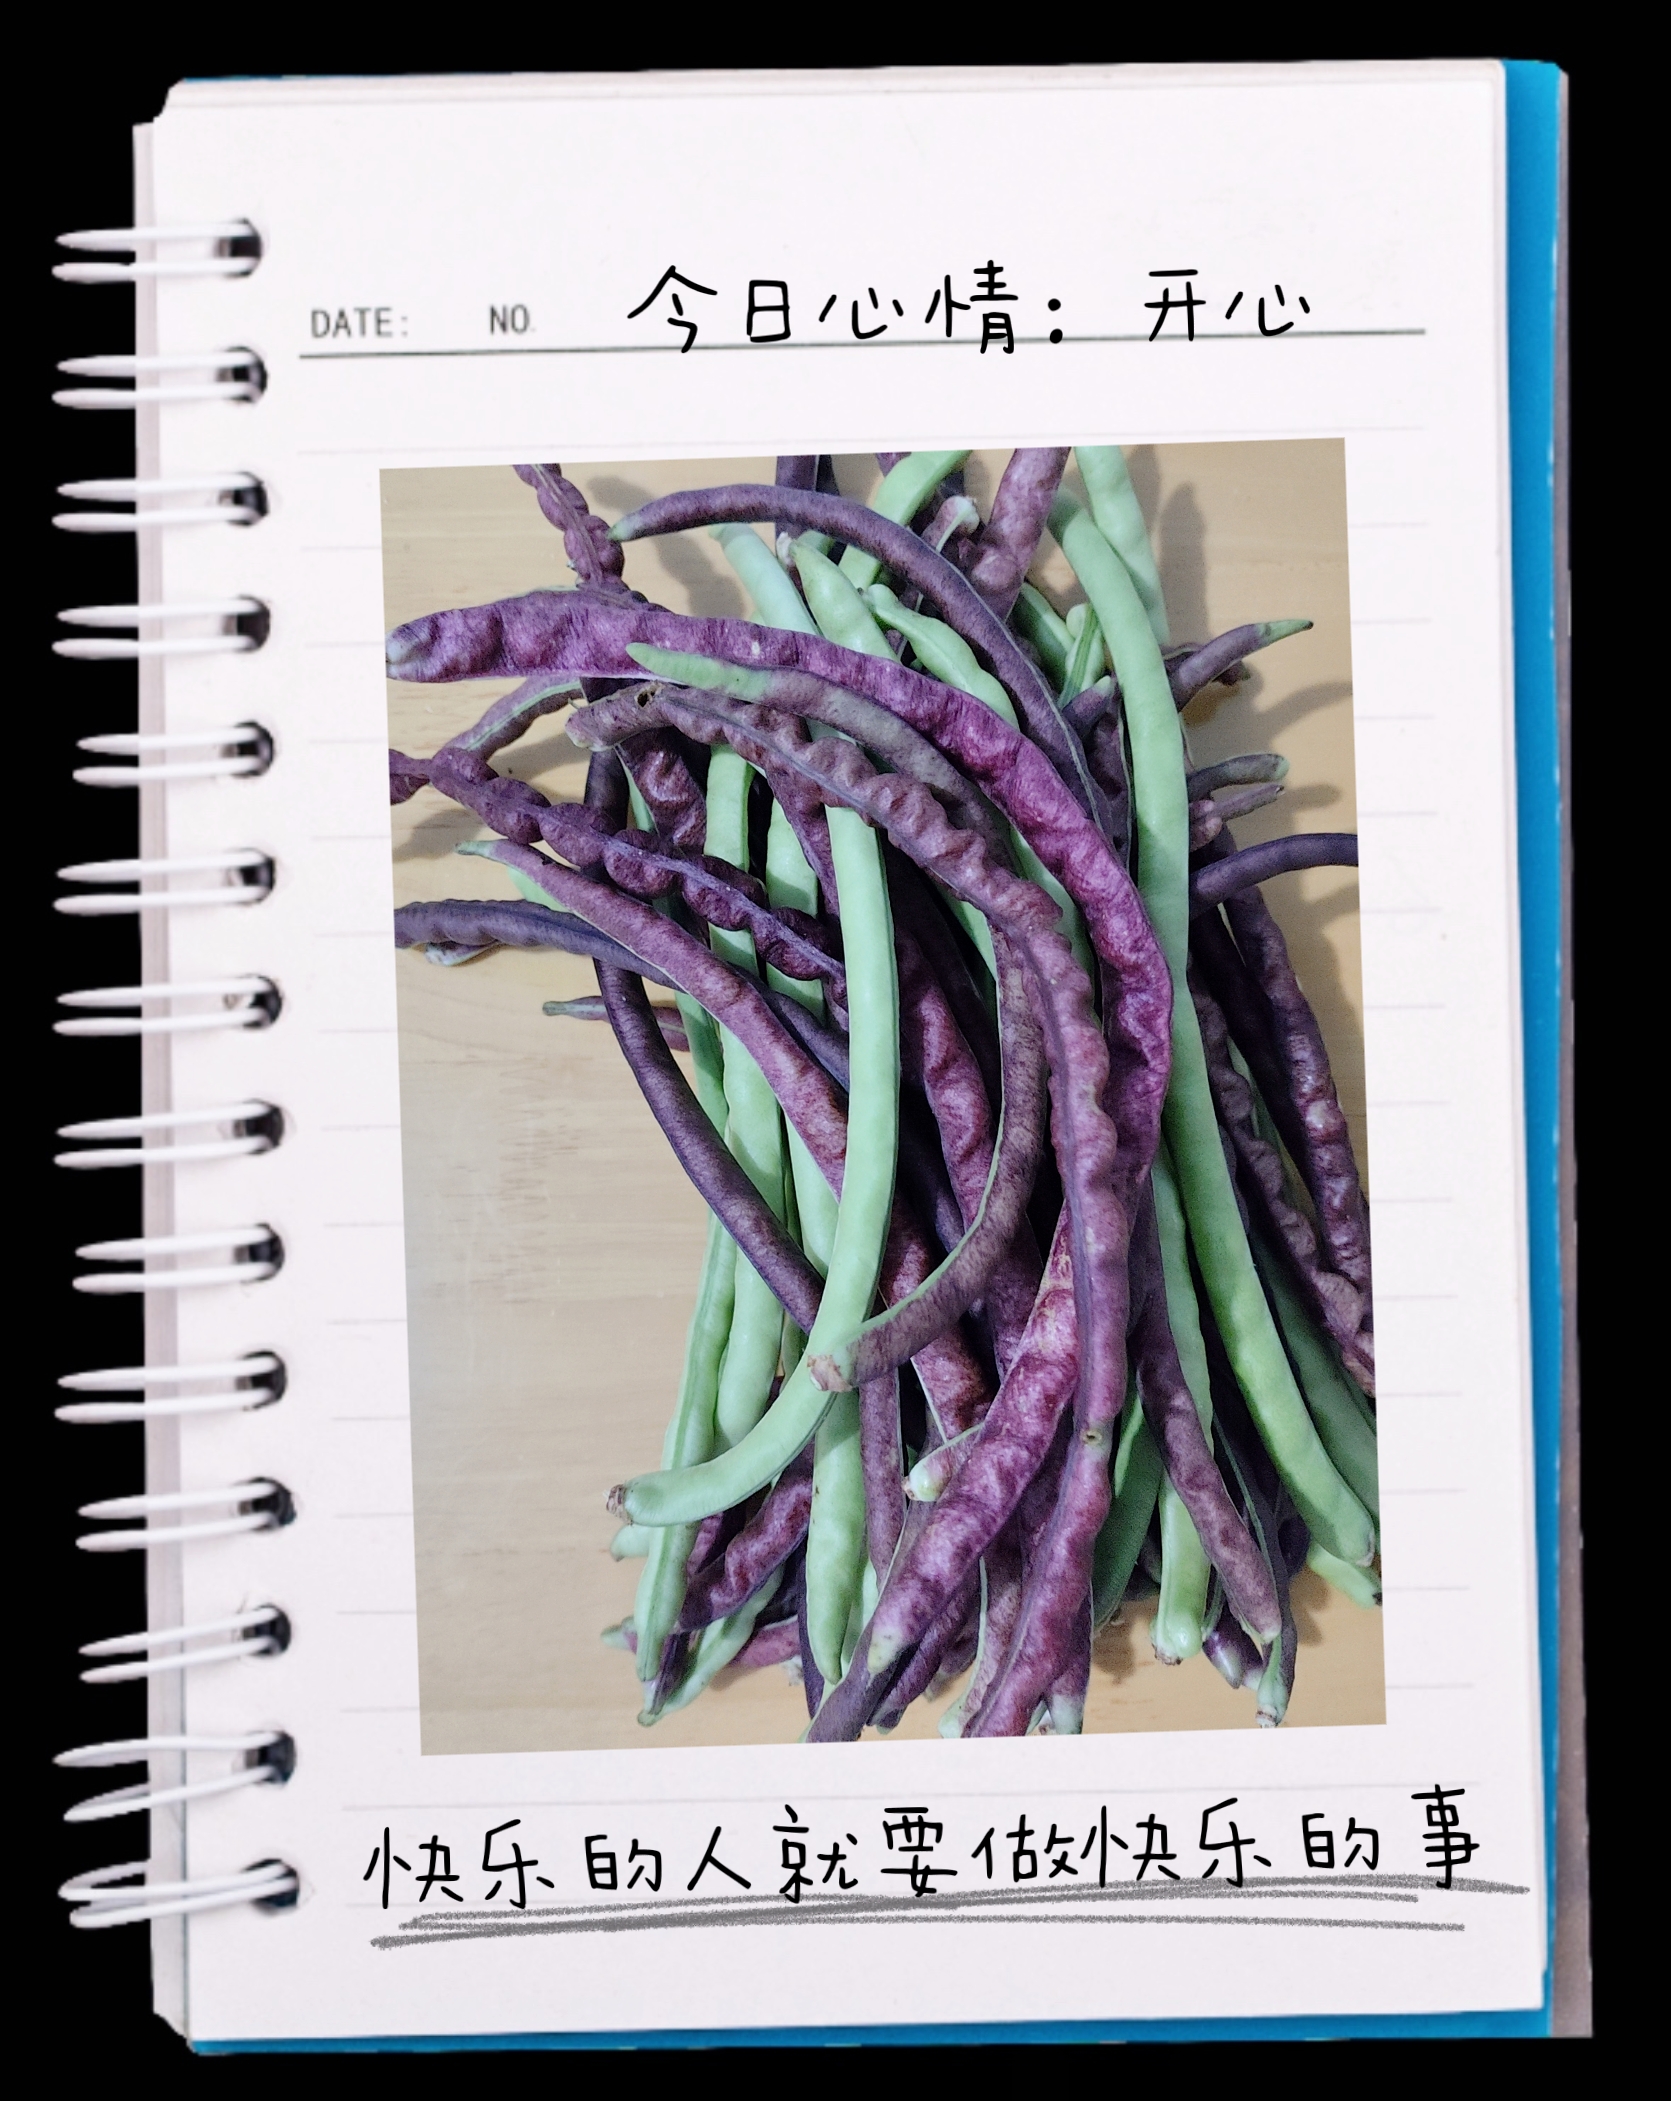 DATE: NO. 今日心情：开心
快乐的人就要做快乐的事